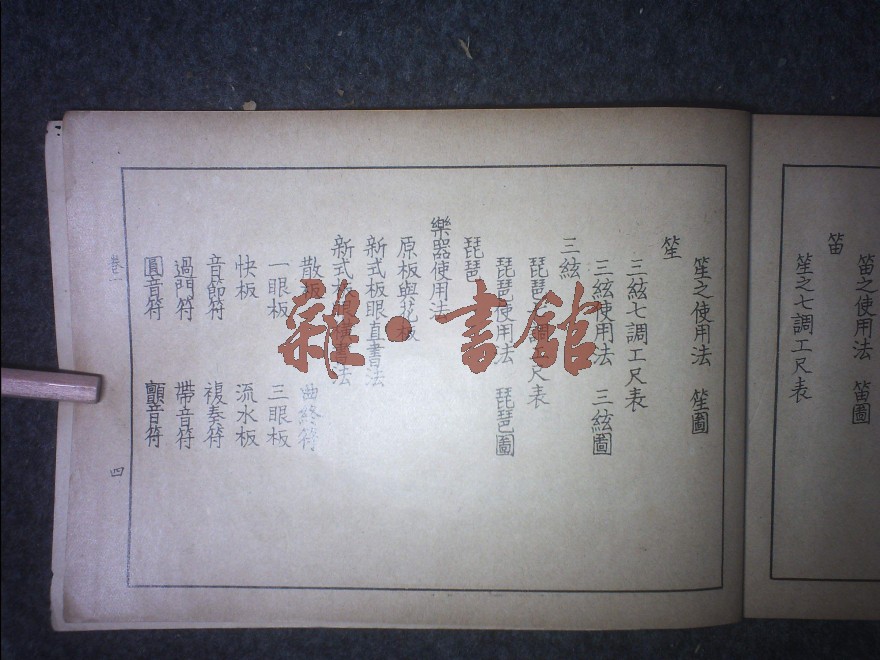 笛之使用法　笛圖
笛
笙之七調工尺表
笙之使用法　笙圖
笙
三絃七調工尺表
三絃使用法　三絃圖
三絃
琵琶七調工尺表
琵琶使用法　琵琶圖
琵琶
樂器使用法
原板與花板
新式板眼直書法
新式板眼橫書法
散板　曲終符
一眼板　三眼板
快板　流水板
音節符　複奏符
過門符　帶音符
圓音符　顫音符
卷一　四
雜·書館